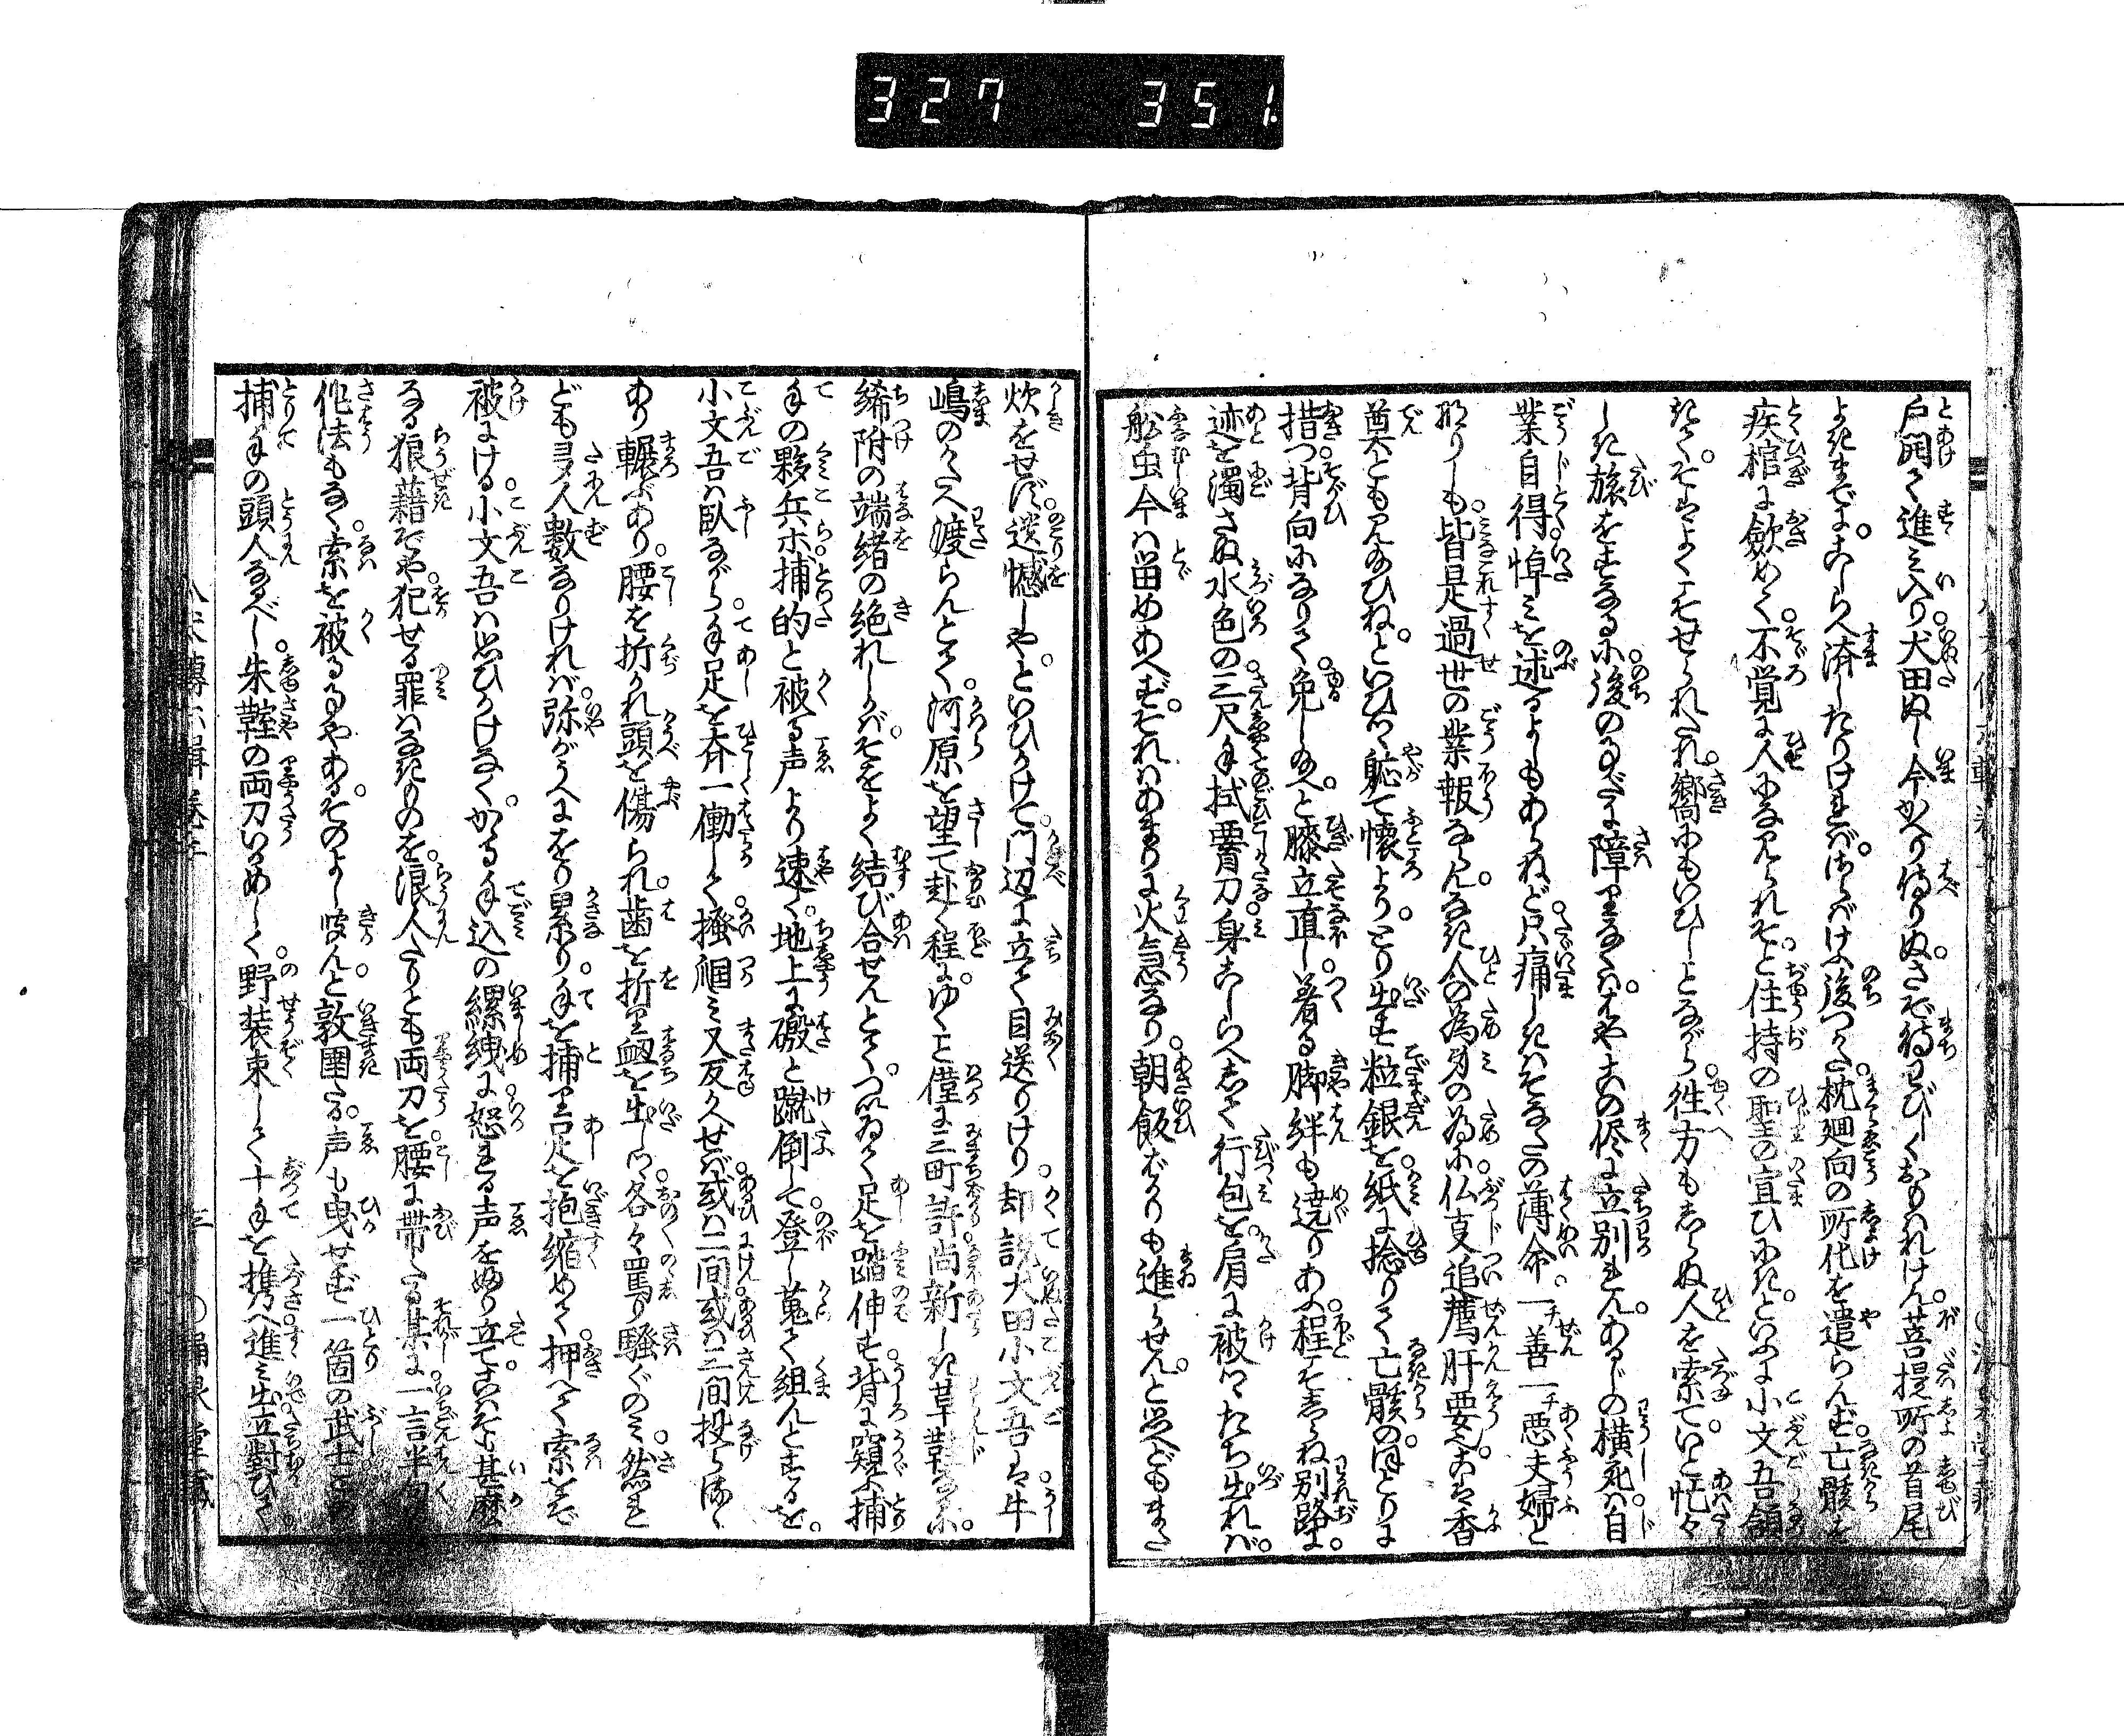 327 351
戸開て進み入り犬田ぬし今かへり侍りぬ。さぞ待わびしくおもはれけん。菩提所の首尾
よきまでにこしらへ済したりければ。はらばけふ後つかた。枕廻向の所化を遣らんず。亡骸を
疾棺に歛めて。不覚に人になみられそと。住持の聖の宣ひにき。といふに小文吾領
きて。そはよくこそせられたれ。嚮にもいひしとながら。徃方もしらぬ人を索て。いと忙々
しき旅をするなるに。後のなごに障りなくば。はやこの侭に立別れん。あるじの横死は自
業自得。悼みを述るよしもあらねど。只痛しきはそなたの薄命。一善一悪夫婦と
なりしも。皆是過世の業報ならん。なき人の為身の為に。仏事追薦肝要也。こは香
奠ともみ給ひね。といひつゝ軈て懐より。とり出す粒銀を。紙に捻りて亡骸の。ほとりに
措つ背向になりて。免し給へと膝立直し。着る脚絆も遶りあふ。程をしらね別路に。
迹を濁さぬ水色の。三尺手拭要刀。身ごしらへして行包を。肩に被つゝたち出れば。
舩虫今は留めあへず。それはあまりに火急なり。朝飯ばかりも進らせん。と思へどもまだ
炊をせず。遺憾しや。といひかけて。門辺に立て目送りけり。却説犬田小文吾は。牛
嶋のかたへ渡らんとて。河原を望て赴く程に。ゆくこと僅に三町許。尚新しき草鞋なるに。
縭附の端緒の絶れしかば。そをよく結び合せんとて。つゐゐて足を踏伸す。背に窺ふ捕
手の夥兵ホ。捕的と被る声より速く。地上に礑と蹴倒して。登し蒐て組んとするを。
小文吾は臥ながら。手足を斉一働して。掻㨫み又反かへせば。或は二間或は三間投らるゝ
あり輾ぶあり。腰を折かれ頭を傷られ。歯を折り衂を出しつ。各々罵り騒ぐのみ。然れ
ども多人數なりければ。弥がうへにをり累り。手を捕り足を抱縮めて。押へて索をぞ
被にける。小文吾は思ひかけなく。かゝる手込の縲絏に。怒れる声をふり立て。こはそも甚麼
なる狼藉ぞや。犯せる罪はなきものを。浪人たりとも両刀を。腰に帯たる某に。一言半句の
作法もなく。索を被るゝやある。そのよし聴んと敦圉たる。声も曳せず一箇の武士
捕手の頭人なるべし。朱鞘の両刀いかめしく。野装束して十手を携へ進み出。立對ひて。